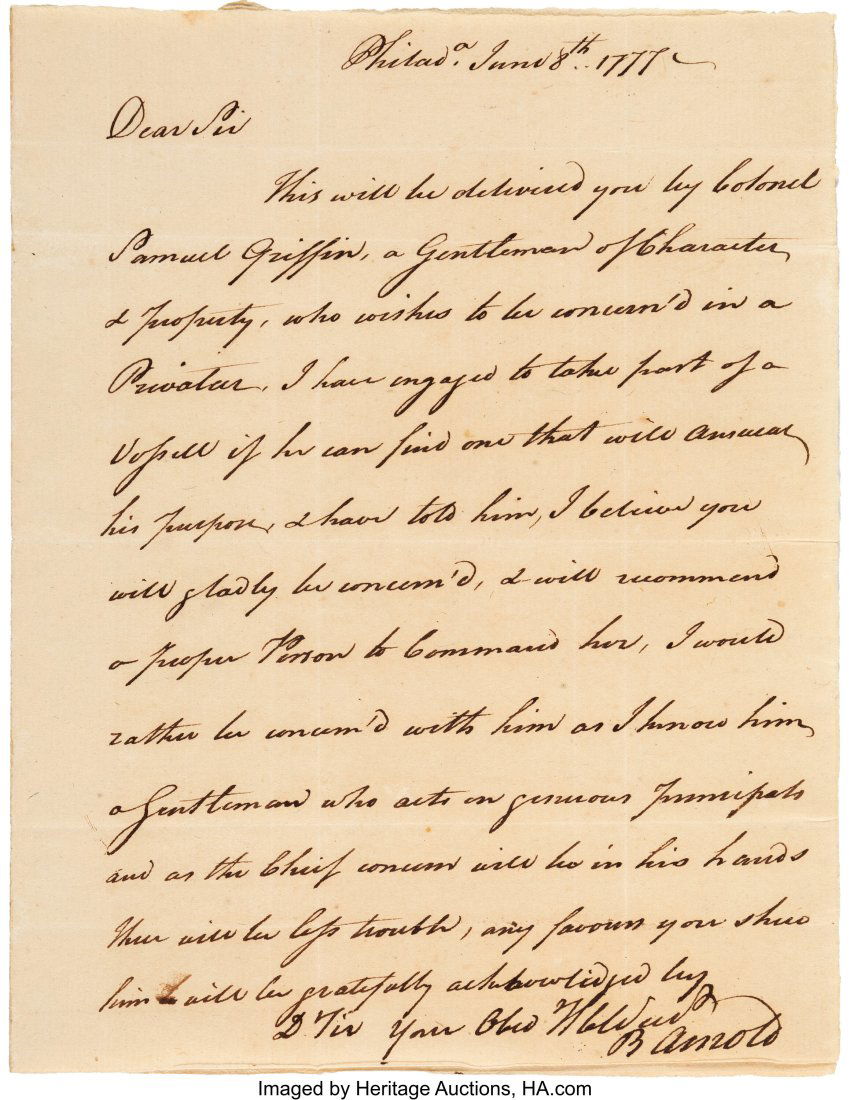 Philad.a June 8th.. 1777
Dear Sir
This will be delivered you by Colonel
Samuel Griffin, a Gentleman of Character
& Property, who wishes to be concern'd in a
Privateer, I have engaged to take part of a
Vessell if he can find one that will answear
his purpose, & have told him, I believe you
will gladly be concern'd, & will recommend
a proper Person to Command her, I would
rather be concern'd with him as I know him
a Gentleman who acts on generous Principals
and as the Chief concern will be in his hands
there will be less trouble, any favours you shew
him will be gratefully acknowledged by
D Sir Your Obed Hble Serv.t
B Arnold
Imaged by Heritage Auctions, HA.com